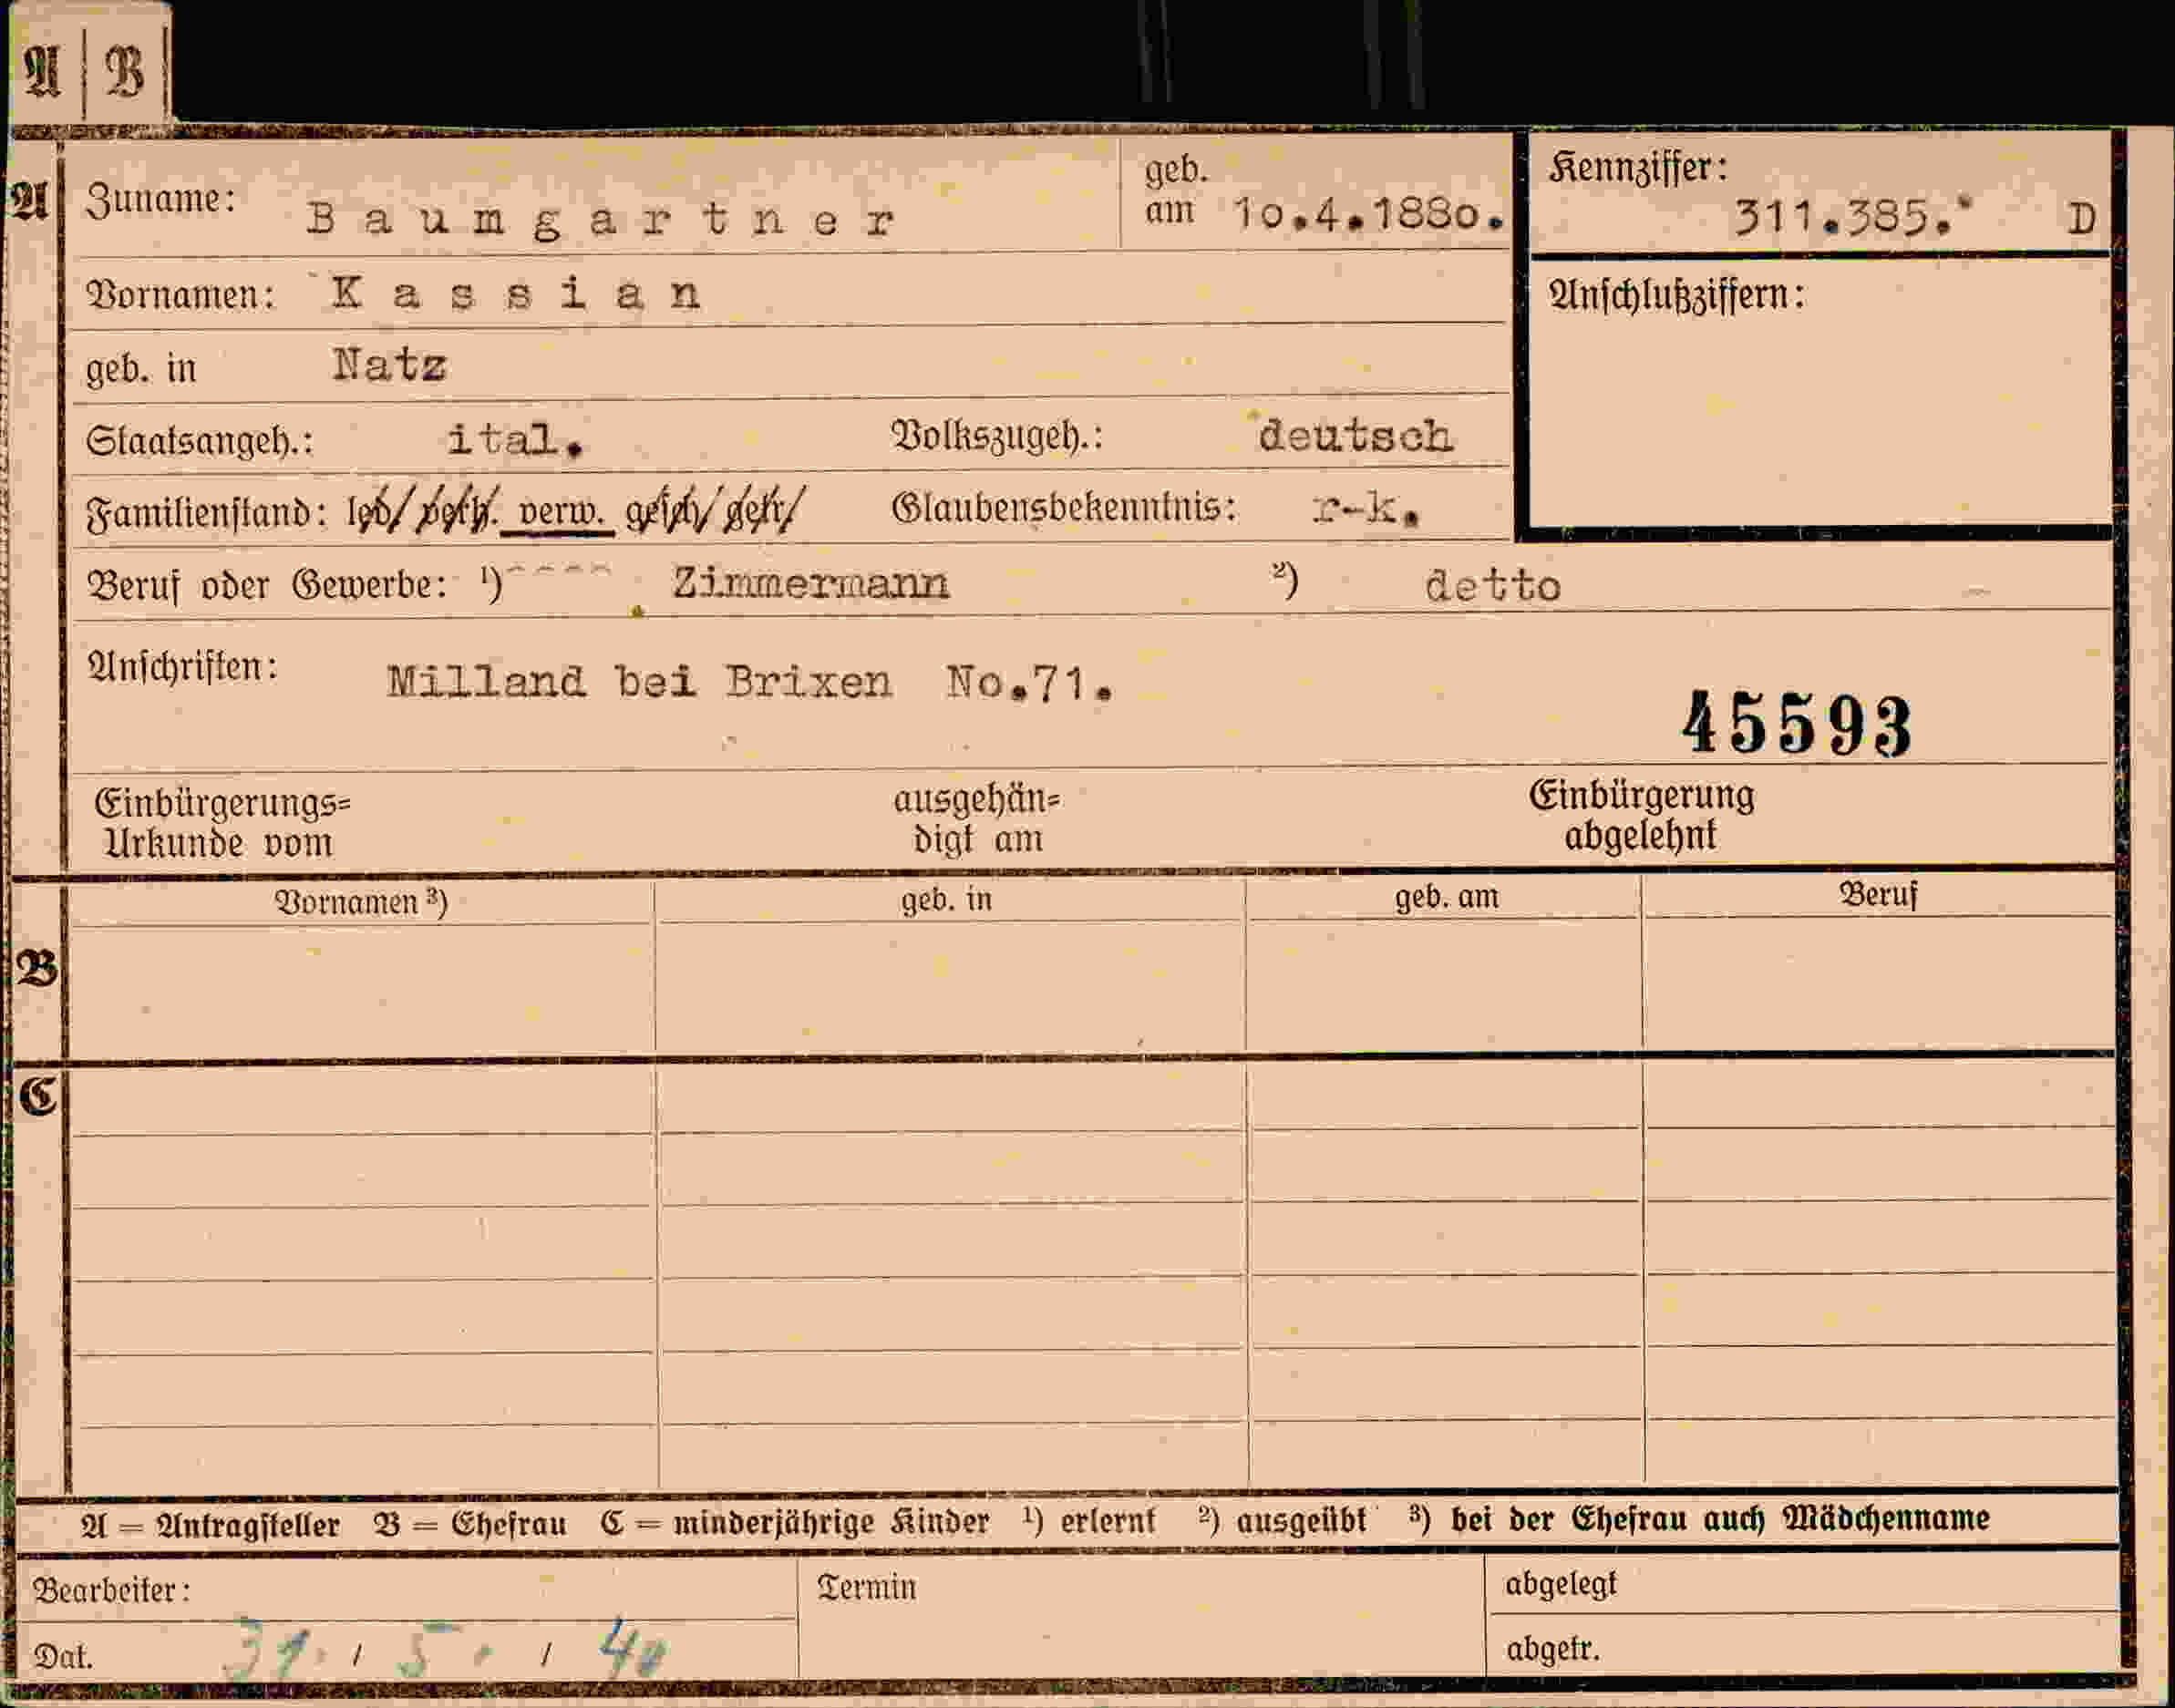 A | B
A
Zuname: Baumgartner
geb. am 10.4.1880.
Kennziffer: 311.385. D
Vornamen: Kassian
Anschlußziffern:
geb. in Natz
Staatsangeh.: ital. Volkszugeh.: deutsch
Familienstand: led/ verh. verw. gesch/ getr/ Glaubensbekenntnis: r-k.
Beruf oder Gewerbe: ¹) ---- Zimmermann ²) detto
Anschriften: Milland bei Brixen No.71.
45593
Einbürgerungs= ausgehän= Einbürgerung
Urkunde vom digt am abgelehnt
Vornamen ³) geb. in geb. am Beruf
B
C
A = Antragsteller B = Ehefrau C = minderjährige Kinder ¹) erlernt ²) ausgeübt ³) bei der Ehefrau auch Mädchenname
Bearbeiter: Termin abgelegt
Dat. 31. / 5. / 40 abgetr.